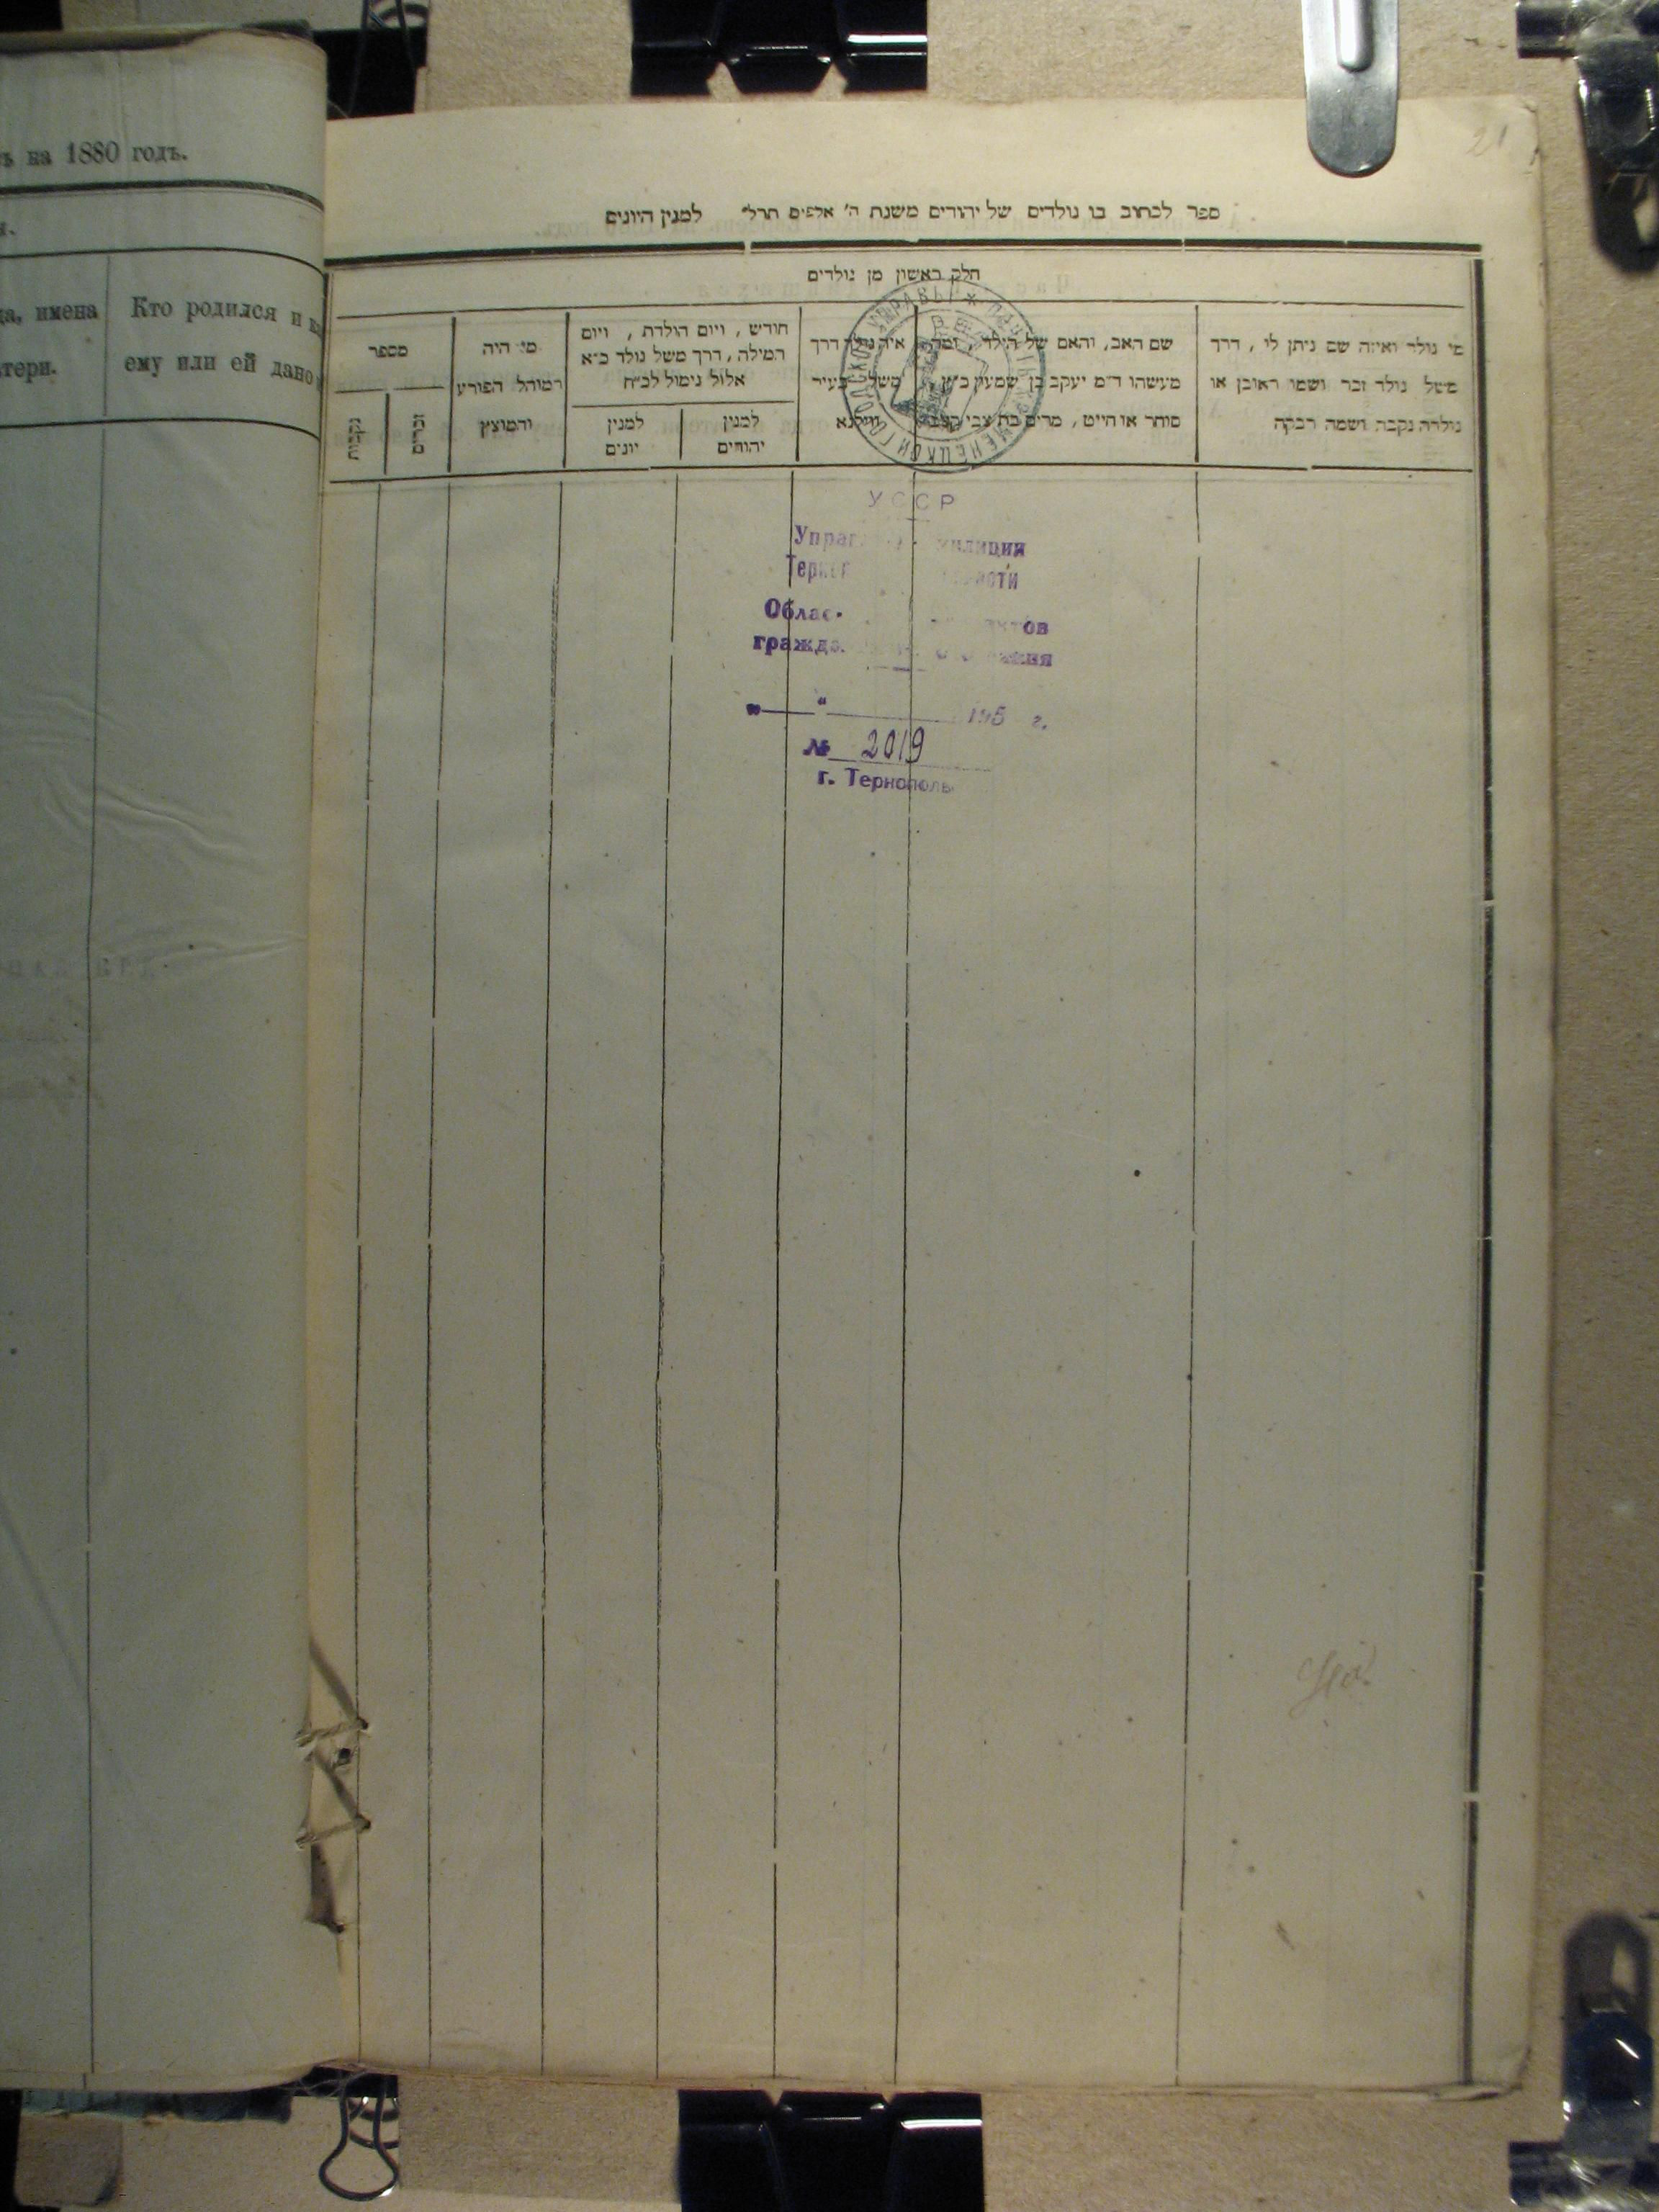 ъ на 1880 годъ.
имена
Кто родился и
тери.
ему или ей дано
21
ספר לכתוב בו נולדים של יהודים משנת ה׳ אלפים תר״ל למנין היונים
חלק ראשון מן נולדים
מי נולד ואיזה שם ניתן לו , דרך
משל נולד זכר ושמו ראובן או
נולדה נקבה ושמה רבקה
שם האב, והאם של הילד,
מעשהו ד״מ יעקב בן שמעון כ״ץ,
סוחר או חייט, מרים בת צבי
איה נולד דרך
משל בעיר
ווילנא
חודש, ויום הולדת, ויום
המילה, דרך משל נולד כ״א
אלול נימול לכ״ח
למנין
יהודים
למנין
יונים
מי היה
המוהל הפורע
והמוצץ
מספר
זכרים
נקבות
УССР
милиции
Облас
тов
гражда
ния
„ “ 195 г.
№ 2019
г. Тернополь